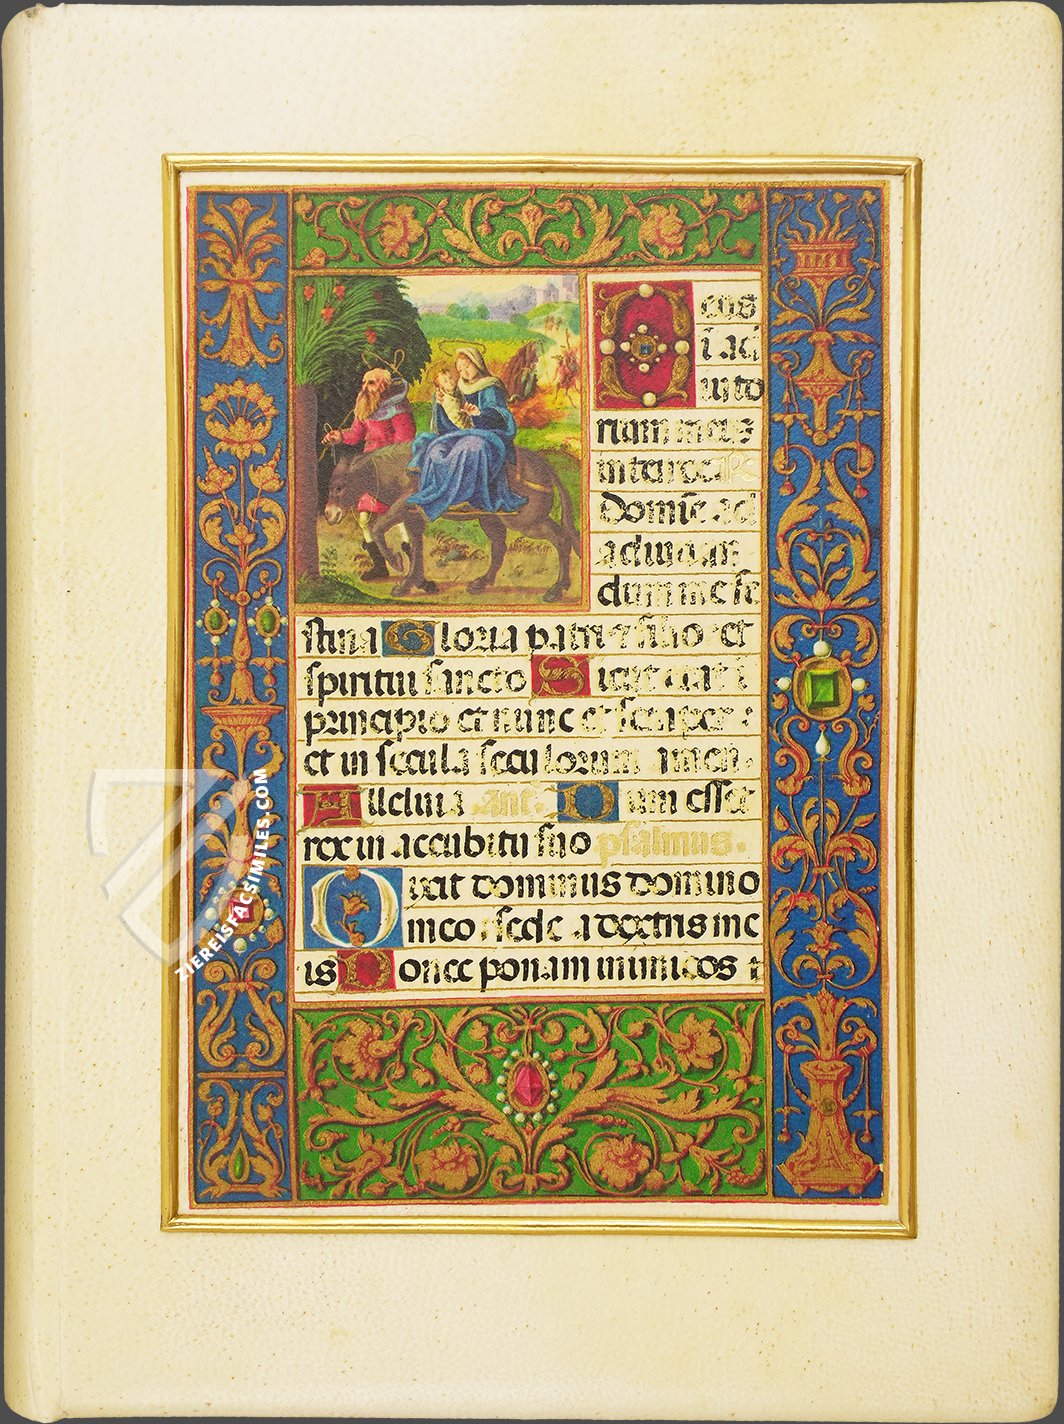 Deus
i ad
iuto
rium meu3
intende
domie ad
adiuuan
dum me fe
stina Gloria patri et filio et
spiritui sancto Sicut erat i
principio et nunc et semper :
et in secula seculorum amen.
Alleluia ant. Dum esset
rex in accubitu suo psalmus.
Dixit dominus domino
meo : sede a dextris me
is Donec ponam inimicos t
ZIEREIS FACSIMILES.COM